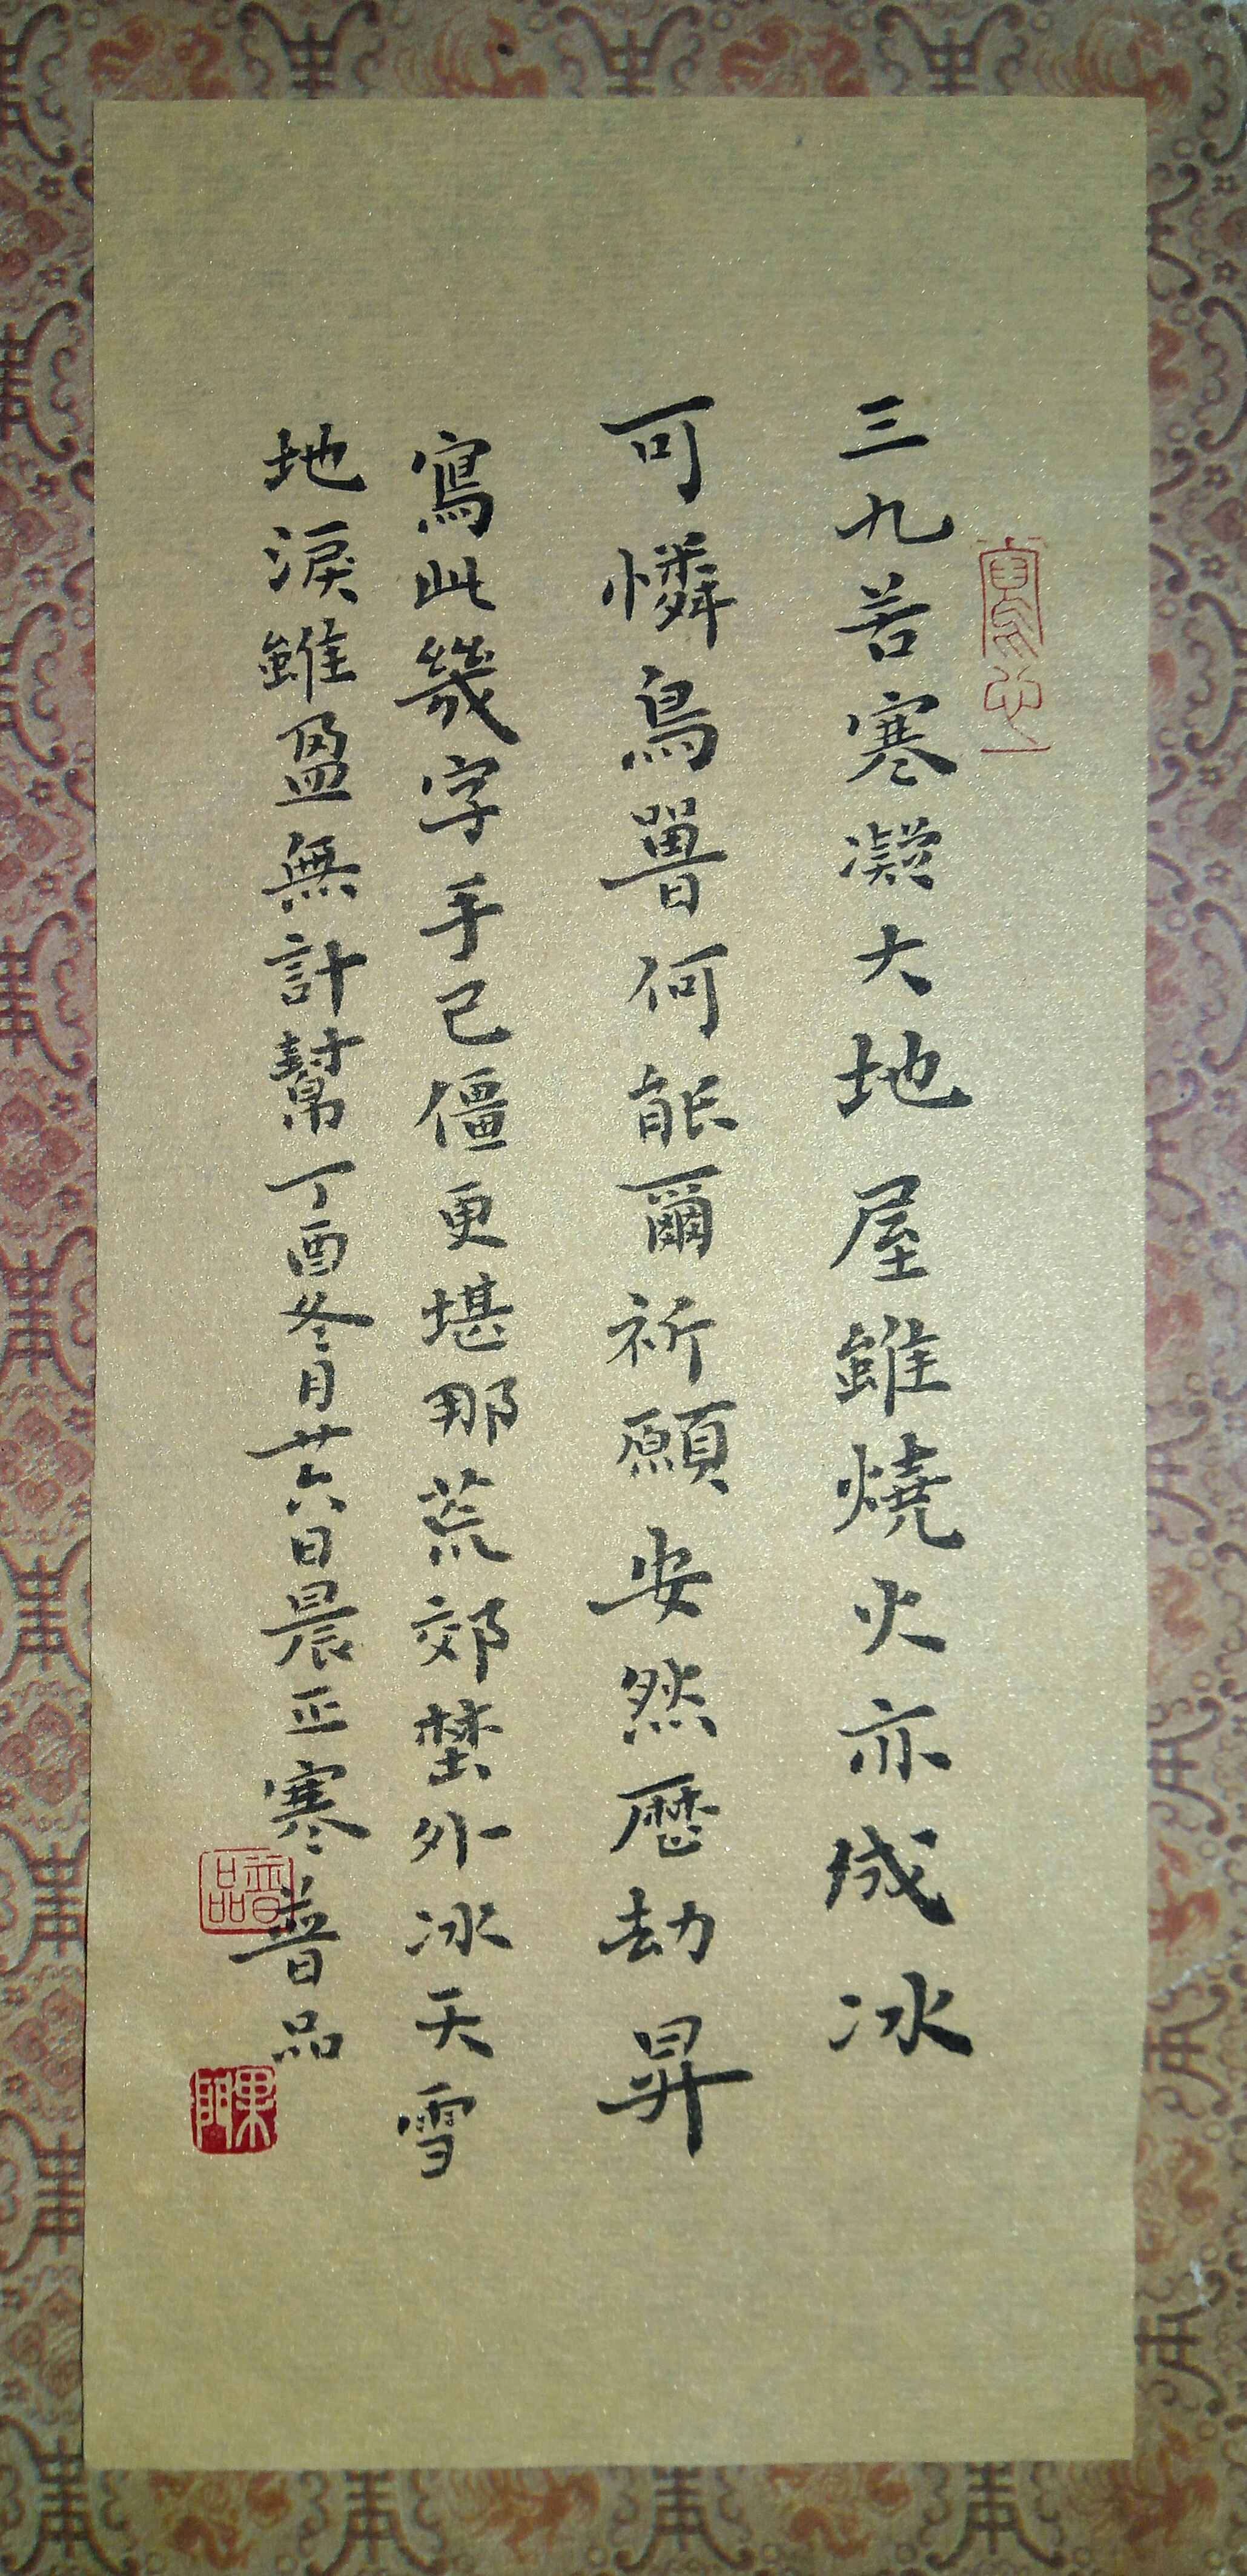 三九苦寒凝大地屋雖燒火亦成冰
可憐鳥獸何能爾祈願安然歷劫昇
寫此幾字手已僵更堪那荒郊埜外冰天雪
地淚雖盈無計幫丁酉冬月廿六日晨正寒普品
寫心
普品